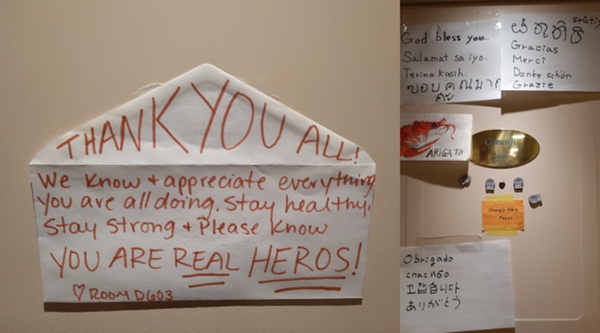 THANK YOU ALL!
We know + appreciate everything
you are all doing. Stay healthy,
Stay strong + Please know
YOU ARE REAL HEROS!
♡ ROOM D603
God bless you..
Salamat sa iyo.
Terima kasih.
ขอบคุณมาก
ค่ะ
Gracias
Merci
Danke schön
Grazie
ARIGATO
Obrigado
ありがとう